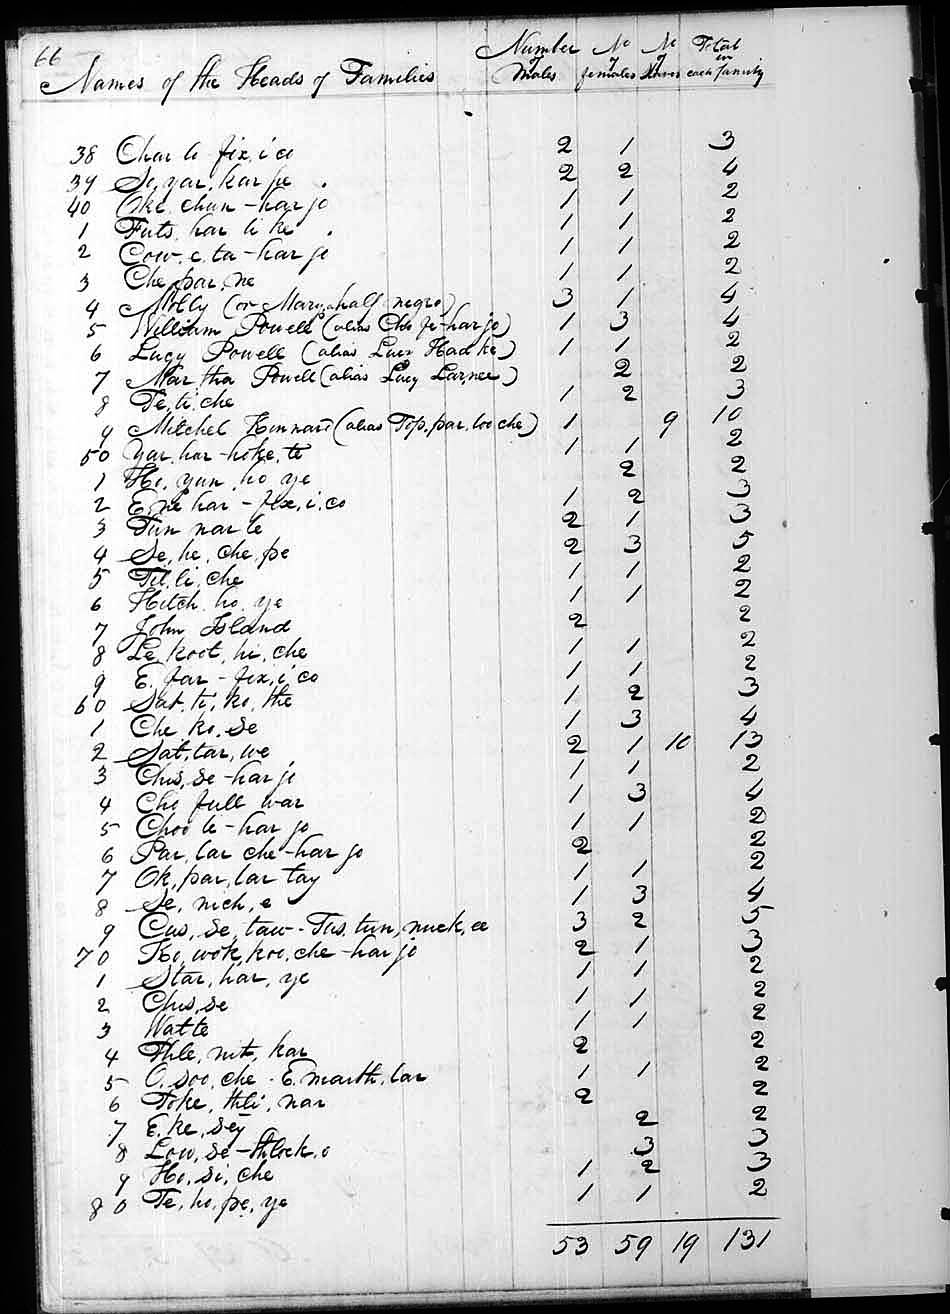 66
Names of the Heads of Families Number of Males No of females No of Slaves Total in each family
38 Char lo fix, i co 2 1 3
39 So, yar, har jo 2 2 4
40 Oke chun - har jo 1 1 2
1 Futs, har li ke 1 1 2
2 Cow, e, ta - har jo 1 1 2
3 Che, par, ne 1 1 2
4 Molly (or Mary half negro) 3 1 4
5 William Powell (alias Cho fe - har jo) 1 3 4
6 Lucy Powell (alias Lucy Had ke) 1 1 2
7 Martha Powell (alias Lucy Larnee) 2 2
8 Te, ti, che 1 2 3
9 Mitchel Kinnard (alias Top, par, loo che) 1 9 10
50 Yar, har - hoke, te 1 1 2
1 Ho, yun, ho ye 2 2
2 E, ne har - fix, i, co 1 2 3
3 Tun nar le 2 1 3
4 Se, he, che, pe 2 3 5
5 Til, li, che 1 1 2
6 Hitch, ho, ye 1 1 2
7 John Island 2 2
8 Le, koot, hi, che 1 1 2
9 E, far - fix, i co 1 1 2
60 Sat, ti, ko, the 1 2 3
1 Che ko, se 1 3 4
2 Sat, tar, we 2 1 10 13
3 Chis, se - har jo 1 1 2
4 Cho full war 1 3 4
5 Choo le - har jo 1 1 2
6 Par, lar che - har jo 2 2
7 Ok, par, lar tay 1 1 2
8 Se, nich, e 1 3 4
9 Cus, se, taw - Tus, tun, nuck, ee 3 2 5
70 Ko, wok, koo, che - har jo 2 1 3
1 Star, har, ye 1 1 2
2 Chis, se 1 1 2
3 Watte 1 1 2
4 Thle, mit, kar 2 2
5 O, soo, che - E, marth, lar 1 1 2
6 Toke, thli, nar 2 2
7 E, ke, sey 2 2
8 Low, se - thlock, o 3 3
9 Ho, si, che 1 2 3
80 Te, ho, pe, ye 1 1 2
53 59 19 131